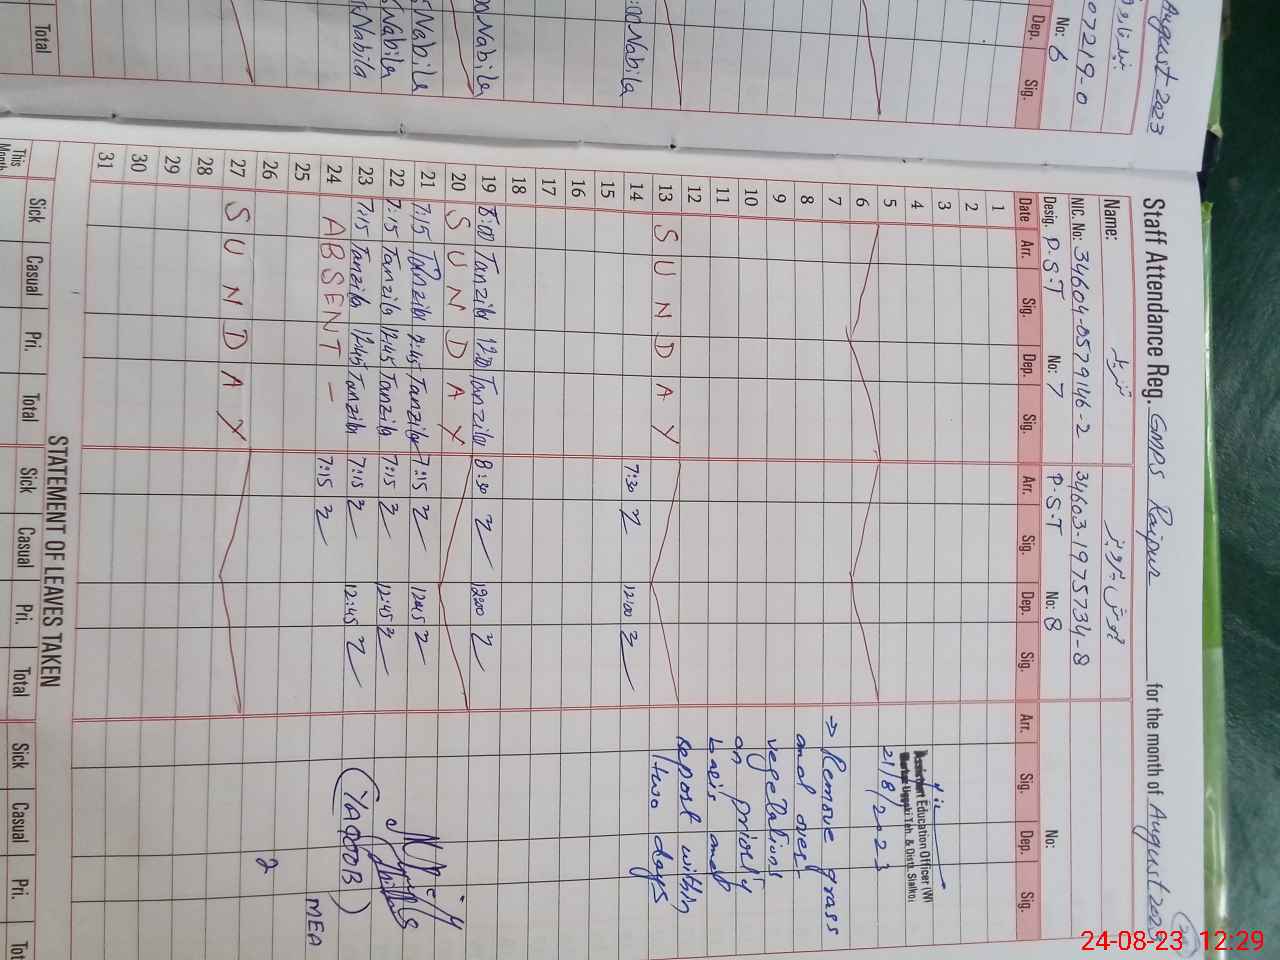 August 2023
07219-0
No: 6
Dep. Sig.
:00 Nabila
00 Nabila
Nabila
Nabila
Nabila
Total
Staff Attendance Reg. GMPS Raipur for the month of August 2023
Name:
NIC. No: 34604-0579146-2 34603-1975734-8
Desig. P.S.T No: 7 P.S.T No: 8 No:
Date Arr. Sig. Dep. Sig. Arr. Sig. Dep. Sig. Arr. Sig. Dep. Sig.
1
2
3
4
5
6
7
8
9
10
11
12
13 SUNDAY
14 7:30 12:00
15
16
17
18
19 8:00 Tanzila 12:00 Tanzila 8:30 12:00
20 SUNDAY
21 7:15 Tanzila 12:45 Tanzila 7:15 12:45
22 7:15 Tanzila 12:45 Tanzila 7:15 12:45
23 7:15 Tanzila 12:45 Tanzila 7:15 12:45
24 ABSENT - 7:15
25
26
27 SUNDAY
28
29
30
31
Assistant Education Officer (W)
Markaz Uggoki Teh & Distt. Sialkot
21/8/2023
→ Remove grass
and over
vegetations
on priority
basis and
report within
two days
(YAQOOB)
MEA
2
STATEMENT OF LEAVES TAKEN
Sick Casual Pri. Total Sick Casual Pri. Total Sick Casual Pri. Tot
This Month
24-08-23 12:29